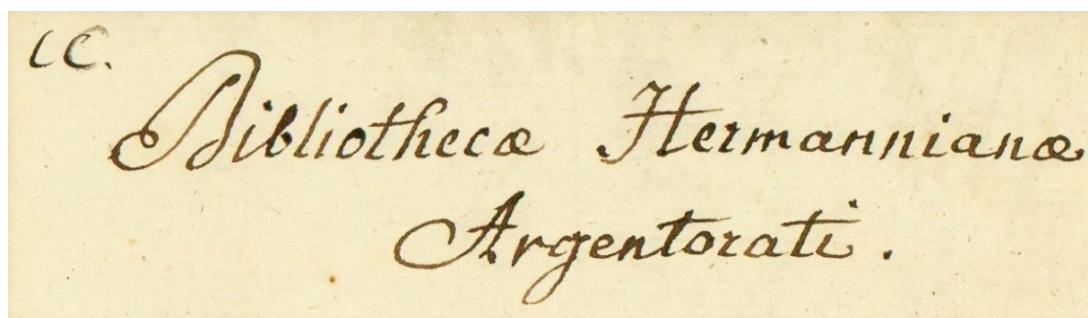 CC.
Bibliothecæ Hermannianæ
Argentorati.